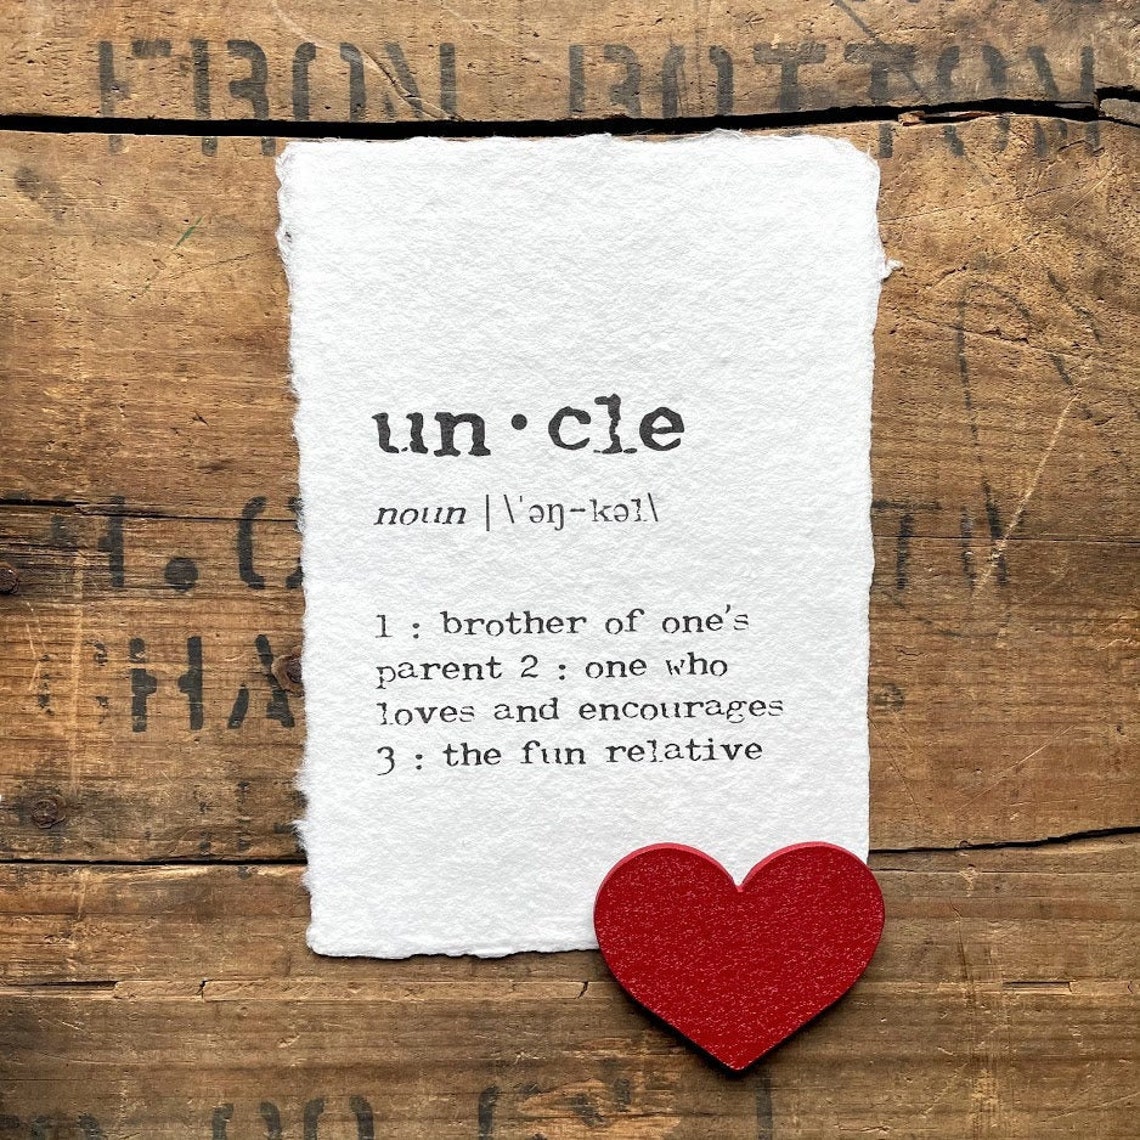 FRON BOTTON
un•cle
noun | \ˈəŋ-kəl\
1 : brother of one's
parent 2 : one who
loves and encourages
3 : the fun relative
HA